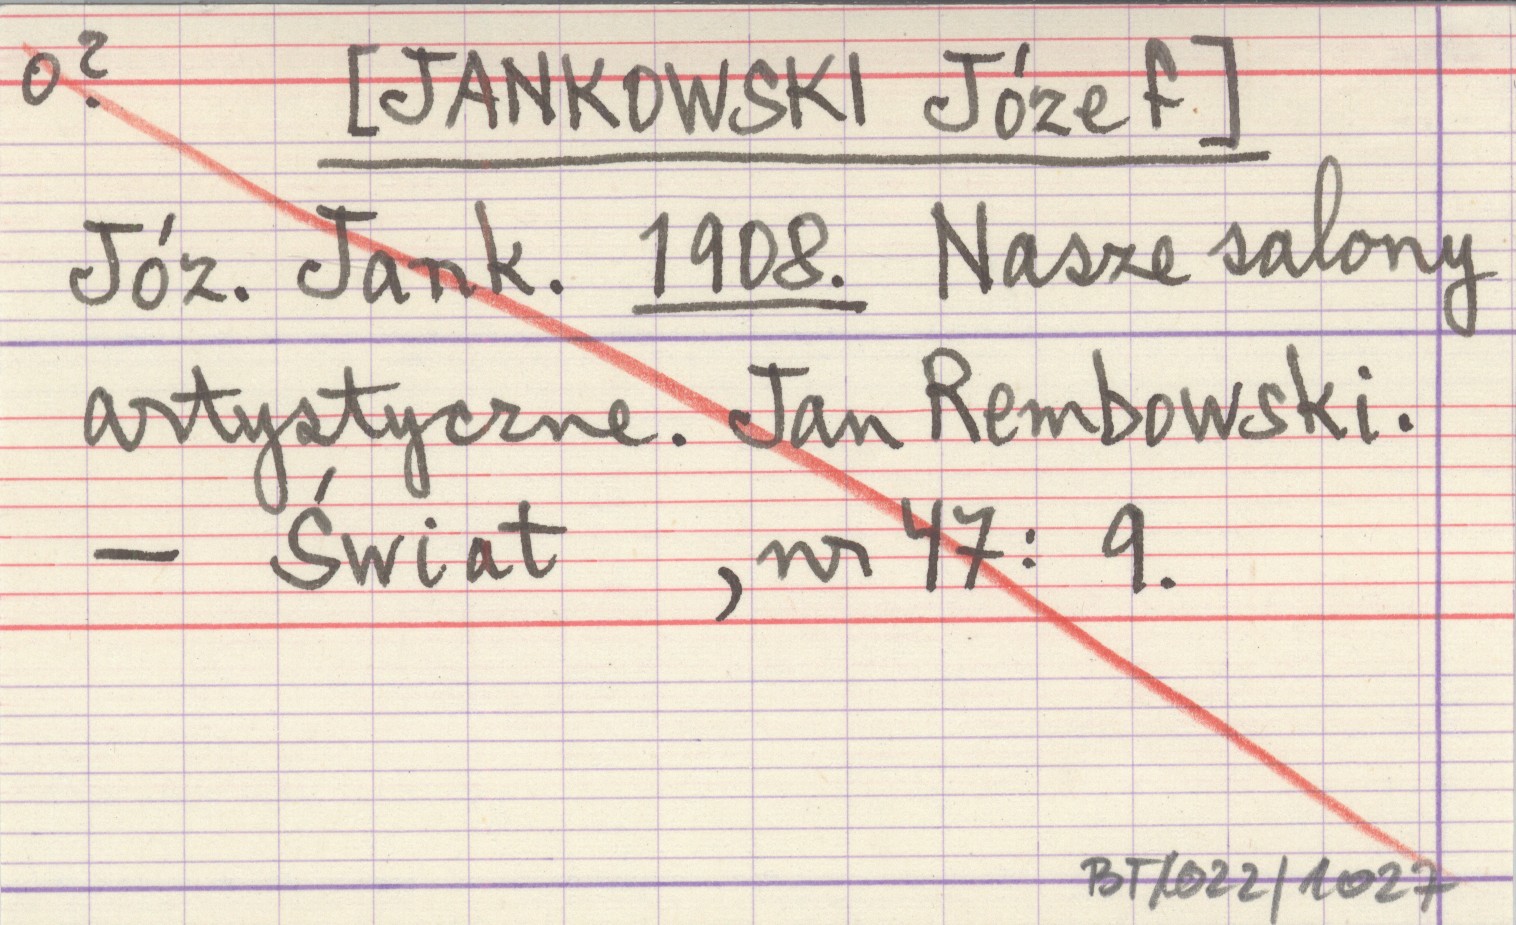 o? [JANKOWSKI Józef]
Józ. Jank. 1908. Nasze salony
artystyczne. Jan Rembowski.
— Świat , nr 47: 9.
BT/022/1027